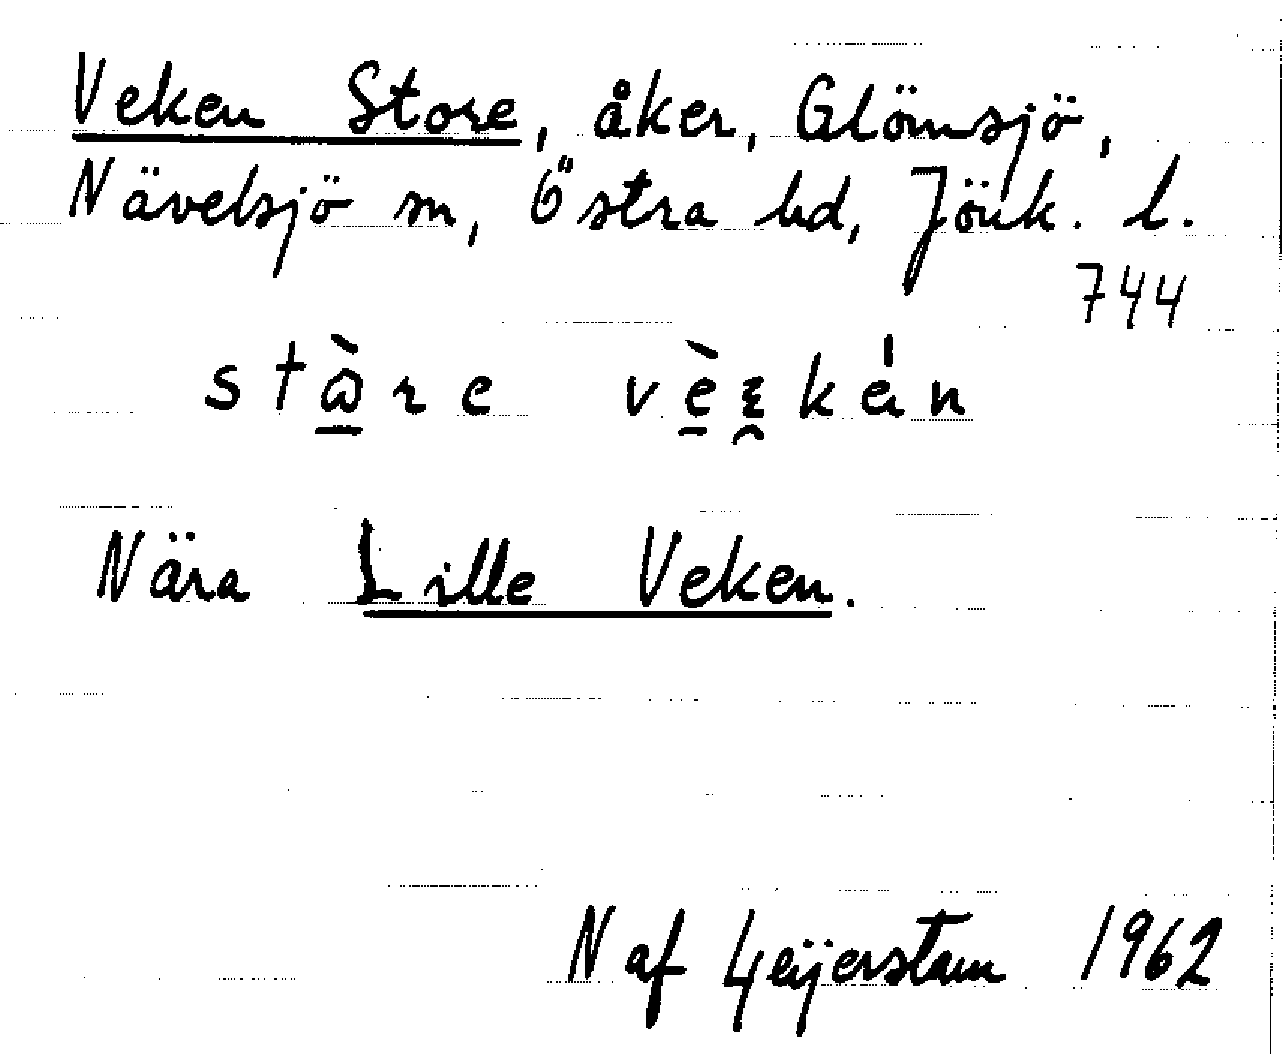 Veken Store, åker, Glömsjö,
Nävelsjö sn, Östra hd, Jönk. l.
744
stὼ̱re vè̱ɛ̯kėn
Nära Lille Veken.
N af Geijerstam 1962